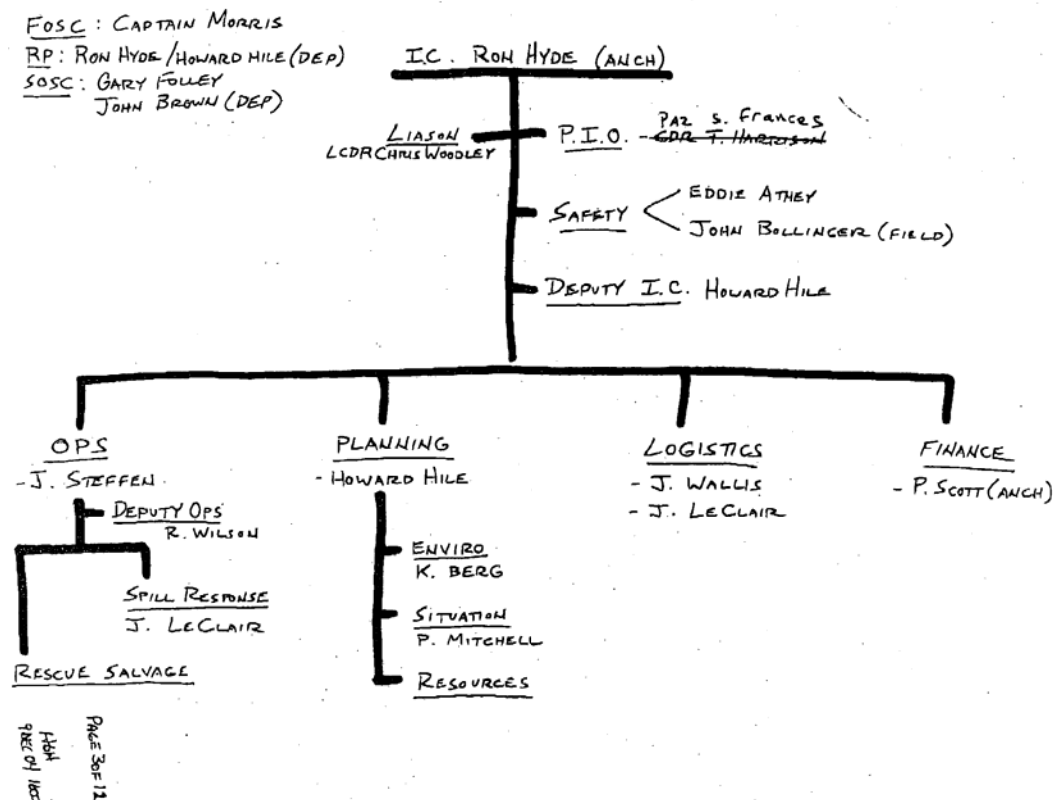 FOSC : CAPTAIN MORRIS
RP : RON HYDE / HOWARD HILE (DEP)
SOSC : GARY FOLLEY
JOHN BROWN (DEP)
I.C. RON HYDE (ANCH)
LIASON
LCDR CHRIS WOODLEY
PA2 S. Frances
P.I.O. - CDR T. HARRISON
SAFETY
EDDIE ATHEY
JOHN BOLLINGER (FIELD)
DEPUTY I.C. HOWARD HILE
OPS
- J. STEFFEN
DEPUTY OPS
R. WILSON
SPILL RESPONSE
J. LECLAIR
RESCUE SALVAGE
PLANNING
- HOWARD HILE
ENVIRO
K. BERG
SITUATION
P. MITCHELL
RESOURCES
LOGISTICS
- J. WALLIS
- J. LECLAIR
FINANCE
- P. SCOTT (ANCH)
PAGE 3 OF 12
9 DEC 04